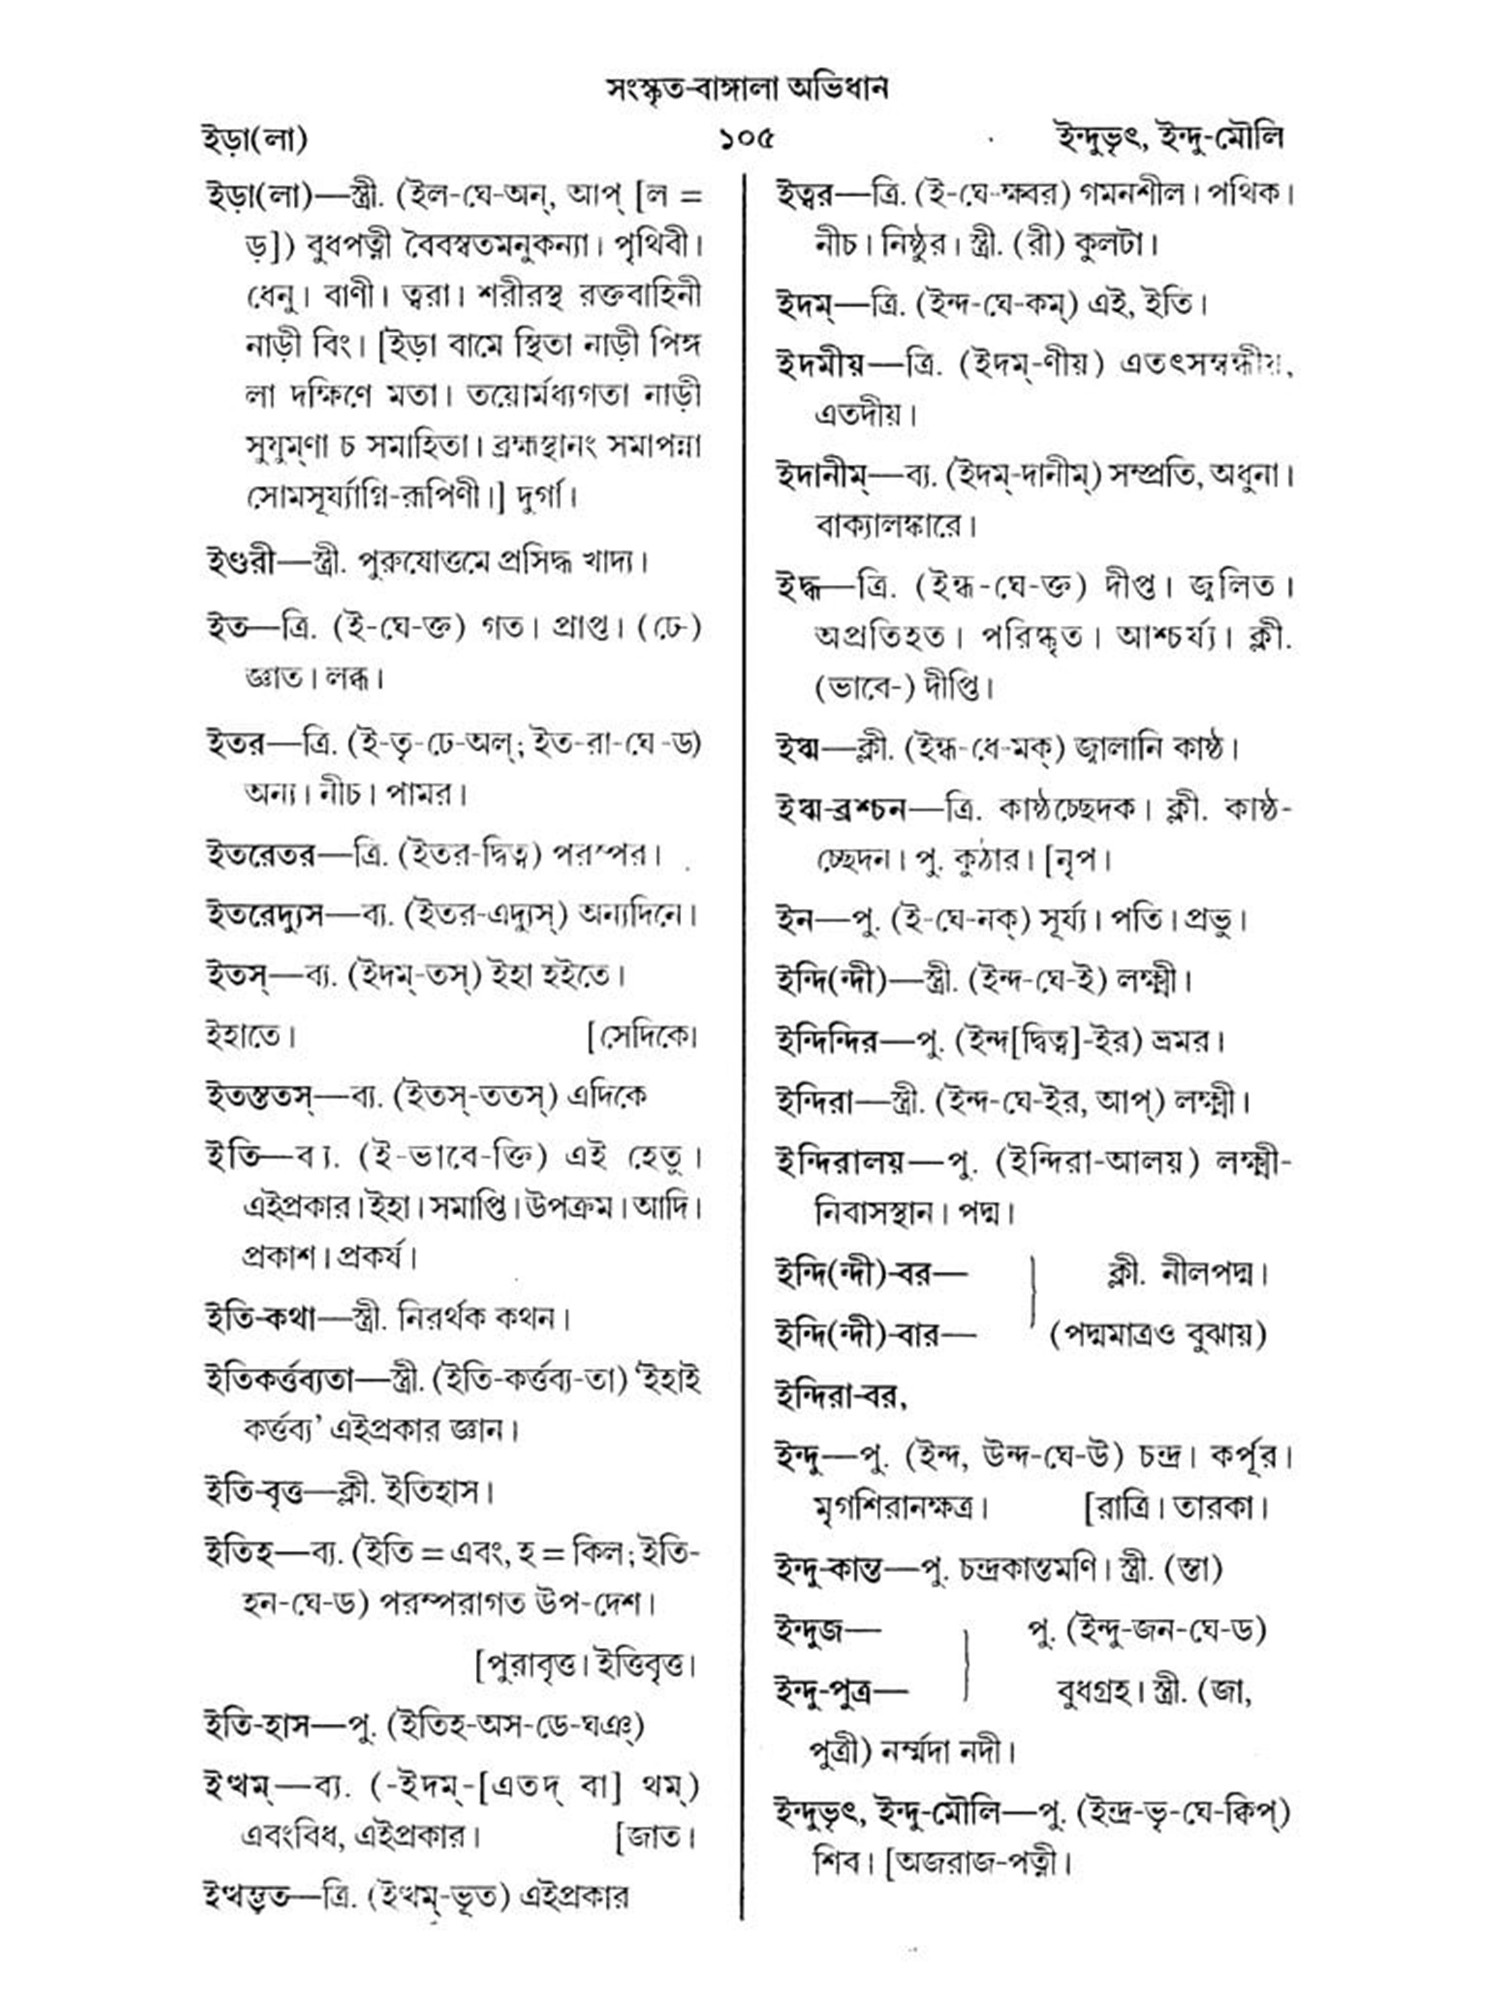 সংস্কৃত-বাঙ্গালা অভিধান
ইড়া(লা)
১০৫
ইন্দুভৃৎ, ইন্দু-মৌলি
ইড়া(লা)—স্ত্রী. (ইল-ঘে-অন্, আপ্ [ল =
ড়]) বুধপত্নী বৈবস্বতমনুকন্যা। পৃথিবী।
ধেনু। বাণী। ত্বরা। শরীরস্থ রক্তবাহিনী
নাড়ী বিং। [ইড়া বামে স্থিতা নাড়ী পিঙ্গ
লা দক্ষিণে মতা। তয়োর্মধ্যগতা নাড়ী
সুযুম্ণা চ সমাহিতা। ব্রহ্মস্থানং সমাপন্না
সোমসূর্য্যাগ্নি-রূপিণী।] দুর্গা।
ইণ্ডরী—স্ত্রী. পুরুষোত্তমে প্রসিদ্ধ খাদ্য।
ইত—ত্রি. (ই-ঘে-ক্ত) গত। প্রাপ্ত। (ঢে-)
জ্ঞাত। লব্ধ।
ইতর—ত্রি. (ই-তৃ-ঢে-অল্; ইত-রা-ঘে-ড)
অন্য। নীচ। পামর।
ইতরেতর—ত্রি. (ইতর-দ্বিত্ব) পরস্পর।
ইতরেদ্যুস—ব্য. (ইতর-এদ্যুস্) অন্যদিনে।
ইতস্—ব্য. (ইদম্-তস্) ইহা হইতে।
ইহাতে। [সেদিকে।
ইতস্ততস্—ব্য. (ইতস্-ততস্) এদিকে
ইতি—ব্য. (ই-ভাবে-ক্তি) এই হেতু।
এইপ্রকার। ইহা। সমাপ্তি। উপক্রম। আদি।
প্রকাশ। প্রকর্ষ।
ইতি-কথা—স্ত্রী. নিরর্থক কথন।
ইতিকর্ত্তব্যতা—স্ত্রী. (ইতি-কর্ত্তব্য-তা) ‘ইহাই
কর্ত্তব্য’ এইপ্রকার জ্ঞান।
ইতি-বৃত্ত—ক্লী. ইতিহাস।
ইতিহ—ব্য. (ইতি = এবং, হ = কিল; ইতি-
হন-ঘে-ড) পরস্পরাগত উপ-দেশ।
[পুরাবৃত্ত। ইত্তিবৃত্ত।
ইতি-হাস—পু. (ইতিহ-অস-ডে-ঘঞ্)
ইত্থম্—ব্য. (-ইদম্-[এতদ্ বা] থম্)
এবংবিধ, এইপ্রকার। [জাত।
ইত্থম্ভূত—ত্রি. (ইত্থম্-ভূত) এইপ্রকার
ইত্বর—ত্রি. (ই-ঘে-ক্ষবর) গমনশীল। পথিক।
নীচ। নিষ্ঠুর। স্ত্রী. (রী) কুলটা।
ইদম্—ত্রি. (ইন্দ-ঘে-কম্) এই, ইতি।
ইদমীয়—ত্রি. (ইদম্-ণীয়) এতৎসম্বন্ধীয়,
এতদীয়।
ইদানীম্—ব্য. (ইদম্-দানীম্) সম্প্রতি, অধুনা।
বাক্যালঙ্কারে।
ইদ্ধ—ত্রি. (ইন্ধ-ঘে-ক্ত) দীপ্ত। জ্বলিত।
অপ্রতিহত। পরিষ্কৃত। আশ্চর্য্য। ক্লী.
(ভাবে-) দীপ্তি।
ইধ্ম—ক্লী. (ইন্ধ-ধে-মক্) জ্বালানি কাষ্ঠ।
ইধ্ম-ব্রশ্চন—ত্রি. কাষ্ঠচ্ছেদক। ক্লী. কাষ্ঠ-
চ্ছেদন। পু. কুঠার। [নৃপ।
ইন—পু. (ই-ঘে-নক্) সূর্য্য। পতি। প্রভু।
ইন্দি(ন্দী)—স্ত্রী. (ইন্দ-ঘে-ই) লক্ষ্মী।
ইন্দিন্দির—পু. (ইন্দ[দ্বিত্ব]-ইর) ভ্রমর।
ইন্দিরা—স্ত্রী. (ইন্দ-ঘে-ইর, আপ্) লক্ষ্মী।
ইন্দিরালয়—পু. (ইন্দিরা-আলয়) লক্ষ্মী-
নিবাসস্থান। পদ্ম।
ইন্দি(ন্দী)-বর— ক্লী. নীলপদ্ম।
ইন্দি(ন্দী)-বার— (পদ্মমাত্রও বুঝায়)
ইন্দিরা-বর,
ইন্দু—পু. (ইন্দ, উন্দ-ঘে-উ) চন্দ্র। কর্পূর।
মৃগশিরানক্ষত্র। [রাত্রি। তারকা।
ইন্দু-কান্ত—পু. চন্দ্রকান্তমণি। স্ত্রী. (ন্তা)
ইন্দুজ— পু. (ইন্দু-জন-ঘে-ড)
ইন্দু-পুত্র— বুধগ্রহ। স্ত্রী. (জা,
পুত্রী) নর্ম্মদা নদী।
ইন্দুভৃৎ, ইন্দু-মৌলি—পু. (ইন্দ্র-ভৃ-ঘে-ক্বিপ্)
শিব। [অজরাজ-পত্নী।